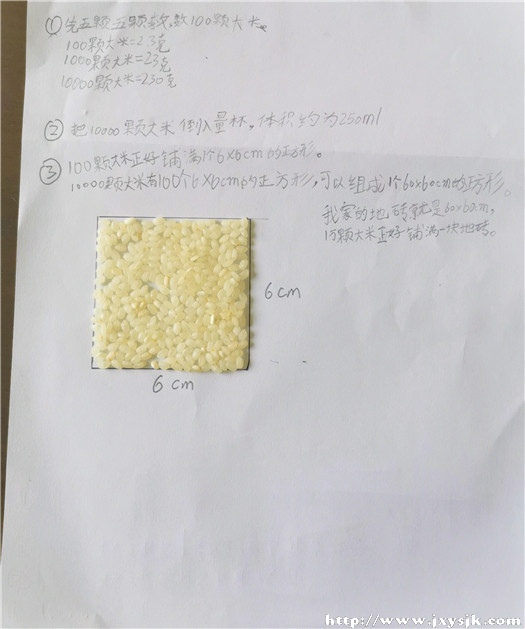 ①先五颗五颗数,数100颗大米。
100颗大米=2.3克
1000颗大米=23克
10000颗大米=230克
②把10000颗大米倒入量杯,体积约为250ml
③100颗大米正好铺满1个6×6cm的正方形。
10000颗大米有100个6×6cm的正方形,可以组成1个60×60cm的正方形。
我家的地砖就是60×60cm,
1万颗大米正好铺满一块地砖。
6cm
6cm
http://www.jxysjk.com